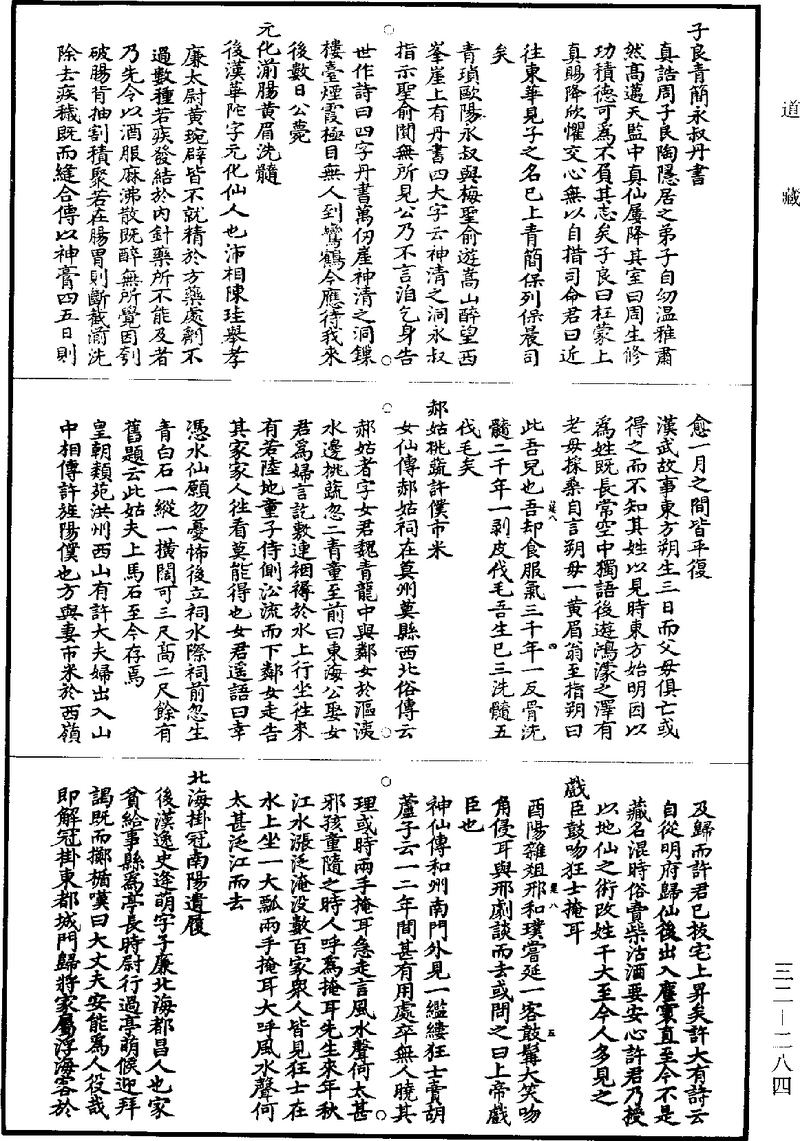 道藏
子良青簡永叔丹書
真誥周子良陶隱居之弟子自幼温雅肅
然高邁天監中真仙屢降其室曰周生修
功積德可為不負其志矣子良曰枉蒙上
真賜降欣懼交心無以自措司命君曰近
往東華見子之名已上青簡保列保晨司
矣
青瑣歐陽永叔與梅聖俞遊嵩山醉望西
峯崖上有丹書四大字云神清之洞永叔
指示聖俞聞無所見公乃不言洎乞身告
世作詩曰四字丹書萬仞崖神清之洞鏁
樓臺煙霞極目無人到鸞鶴今應待我來
後數日公薨
元化湔腸黄眉洗髓
後漢華陀字元化仙人也沛相陳珪舉孝
廉太尉黄琬辟皆不就精於方藥處劑不
過數種若疾發結於内針藥所不能及者
乃先令以酒服麻沸散既醉無所覺因刳
破腸背抽割積聚若在腸胃則斷截湔洗
除去疾穢既而縫合傅以神膏四五日則
愈一月之間皆平復
漢武故事東方朔生三日而父母俱亡或
得之而不知其姓以見時東方始明因以
為姓既長常空中獨語後遊鴻濛之澤有
老母採桑自言朔母一黄眉翁至指朔曰
此吾兒也吾却食服氣三千年一反骨洗
髓二千年一剥皮伐毛吾生已三洗髓五
伐毛矣
郝姑挑蔬許僕市米
女仙傳郝姑祠在莫州莫縣西北俗傳云
郝姑者字女君魏青龍中與鄰女於漚㴉
水邊挑蔬忽二青童至前曰東海公娶女
君為婦言訖敷連裀褥於水上行坐往來
有若陸地童子侍側㳂流而下鄰女走告
其家家人徃看莫能得也女君遥語曰幸
憑水仙願勿憂怖後立祠水際祠前忽生
青白石一縱一横闊可三尺高二尺餘有
舊題云此姑夫上馬石至今存焉
皇朝類苑洪州西山有許大夫婦出入山
中相傳許旌陽僕也方與妻市米於西嶺
及歸而許君已拔宅上昇矣許大有詩云
自從明府歸仙後出入塵寰直至今不是
藏名混時俗賣柴沽酒要安心許君乃授
以地仙之術改姓干大至今人多見之
戲臣鼓吻狂士掩耳
酉陽雜俎邢和璞嘗延一客鼓髯大笑吻
角侵耳與邢劇談而去或問之曰上帝戲
臣也
神仙傳和州南門外見一繿縷狂士賣胡
蘆子云一二年間甚有用處卒無人曉其
理或時兩手掩耳急走言風水聲何太甚
邪孩童隨之時人呼為掩耳先生來年秋
江水漲泛淹没數百家衆人皆見狂士在
水上坐一大瓢兩手掩耳大呼風水聲何
太甚泛江而去
北海掛冠南陽遺履
後漢逸史逄萌字子康北海都昌人也家
貧給事縣為亭長時尉行過亭萌候迎拜
謁既而擲楯嘆曰大丈夫安能為人役哉
即解冠掛東都城門歸將家屬浮海客於
三二—二八四